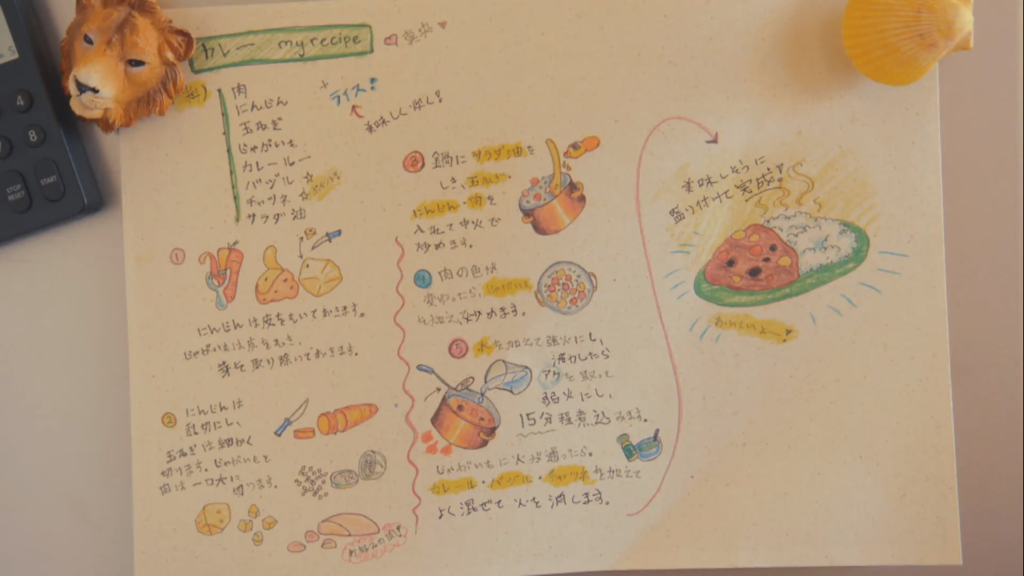 カレー my recipe
肉
にんじん
玉ねぎ
じゃがいも
カレールー
バジル☆
チャツネ☆
サラダ油
+ライス!!
美味しく炊く!
①
にんじんは皮をむいておきます。
じゃがいもは皮をむき、
芽を取り除いておきます。
② にんじんは
乱切りにし、
玉ねぎは細かく
切ります。じゃがいもと
肉は一口大に
切ります。
お好みの肉!
③ 鍋にサラダ油を
しき、玉ねぎ・
にんじん・肉を
入れて中火で
炒めます。
④ 肉の色が
変わったら、じゃがいも
を加え、炒めます。
⑤ 水を加えて強火にし、
沸かしたら
アクを取って
弱火にし、
15分程煮込みます。
じゃがいもに火が通ったら、
カレールー・バジル・チャツネを加えて
よく混ぜて火を消します。
美味しそうに
盛り付けて完成!
4
8
STOP RESET
START